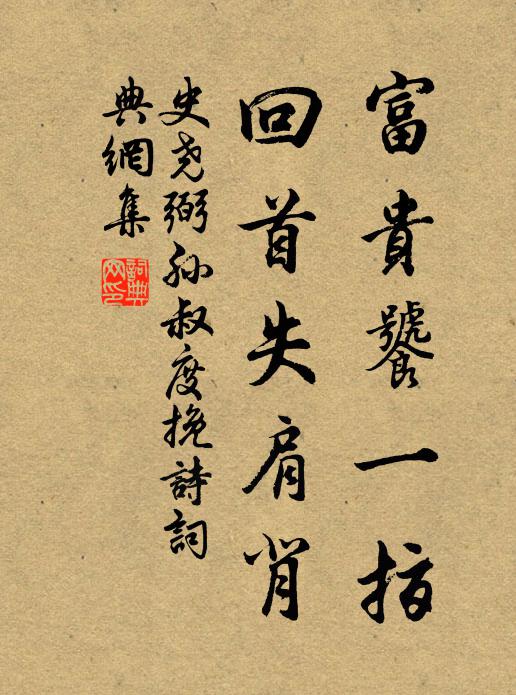 富貴饕一指
回首失肩背
史堯弼孫叔度挽詩詞
典網集
詞典
网印